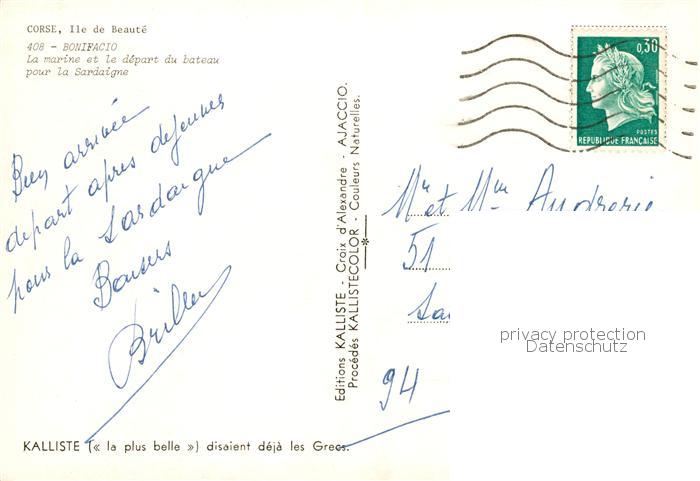 CORSE, Ile de Beauté
408 - BONIFACIO
La marine et le départ du bateau
pour la Sardaigne
Bien arrivée
départ après dejeuner
pour la Sardaigne
Baisers
Editions KALLISTE - Croix d'Alexandre - AJACCIO.
Procédés KALLISTECOLOR - Couleurs Naturelles.
0,30
POSTES
REPUBLIQUE FRANÇAISE
Mr et Mm
51
94
privacy protection
Datenschutz
KALLISTE (« la plus belle ») disaient déjà les Grecs.